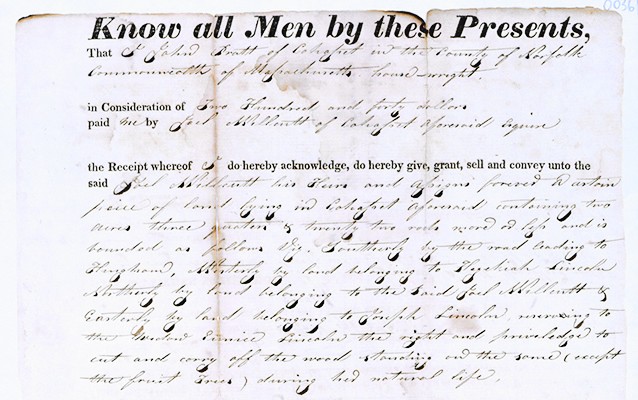 0056
Know all Men by these Presents,
That I John Pratt of Cohasset in the County of Norfolk
Commonwealth of Massachusetts house-wright
in Consideration of Two Hundred and forty dollars
paid me by Joel Willcutt of Cohasset aforesaid Esquire
the Receipt whereof I do hereby acknowledge, do hereby give, grant, sell and convey unto the
said Joel Willcutt his Heirs and Assigns forever A certain
piece of land lying in Cohasset aforesaid containing two
acres three quarters & twenty two rods more or less and is
bounded as follows Viz. Southerly by the road leading to
Hingham, Westerly by land belonging to Hezekiah Lincoln
Northerly by land belonging to the said Joel Willcutt &
Easterly by land belonging to Joseph Lincoln reserving to
the Widow Eunice Lincoln the right and priviledge to
cut and carry off the wood standing on the same (except
the fruit Trees) during her natural life.